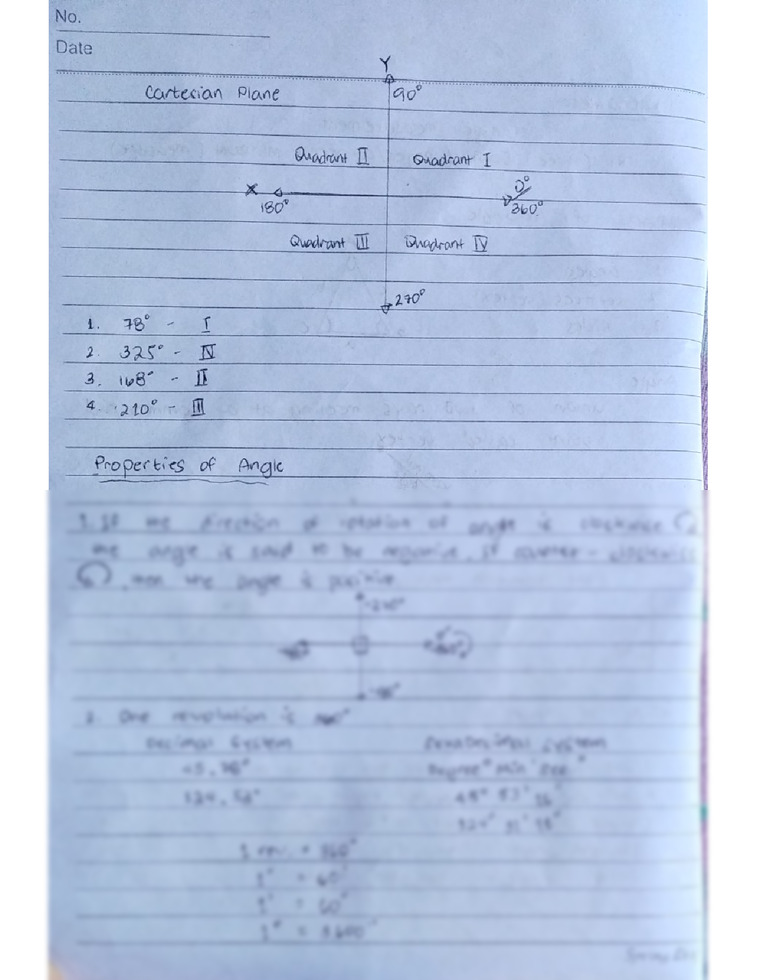 No.
Date
Y
Cartesian Plane 90°
Quadrant II Quadrant I
X 0°
180° 360°
Quadrant III Quadrant IV
270°
1. 78° - I
2. 325° - IV
3. 168° - II
4. 210° - III
Properties of Angle
1. If the direction of rotation of angle is clockwise
the angle is said to be negative. If counter-clockwise
, then the angle is positive
2. One revolution is 360°
Decimal System System
Degree° Min' Sec"
1 rev. = 360°
1° = 60'
1' = 60"
1° = 3600"